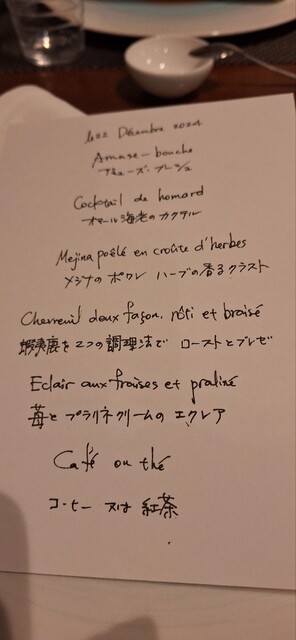 le 22 Décembre 2024
Amuse-bouche
アミューズ・ブーシュ
Cocktail de homard
オマール海老のカクテル
Mejina poêlé en croûte d'herbes
メジナのポワレ ハーブの香るクラスト
Chevreuil deux façon, rôti et braisé
蝦夷鹿を2つの調理法で ローストとブレゼ
Eclair aux fraises et praliné
苺とプラリネクリームのエクレア
Café ou thé
コーヒー 又は 紅茶